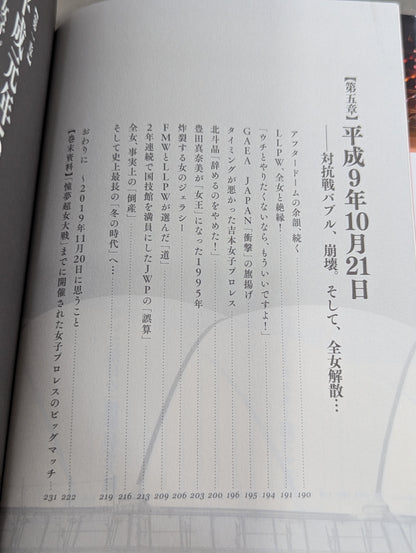 【第五章】平成9年10月21日
――対抗戦バブル、崩壊。そして、全女解散…
アフタードームの余韻、続く 190
LLPW、全女と絶縁! 191
「ウチとやりたくないなら、もういいですよ!」 194
GAEA JAPAN「衝撃」の旗揚げ 195
タイミングが悪かった吉本女子プロレス 196
北斗晶「辞めるのをやめた!」 200
豊田真奈美が「女王」になった1995年 203
炸裂する女のジェラシー 206
FMWとLLPWが選んだ「道」 209
2年連続で国技館を満員にしたJWPの「誤算」 213
全女、事実上の「倒産」 216
そして史上最長の「冬の時代」へ… 219
おわりに ～2019年11月20日に思うこと 222
【巻末資料】「憧夢超女大戦」までに開催された女子プロレスのビッグマッチ… 231